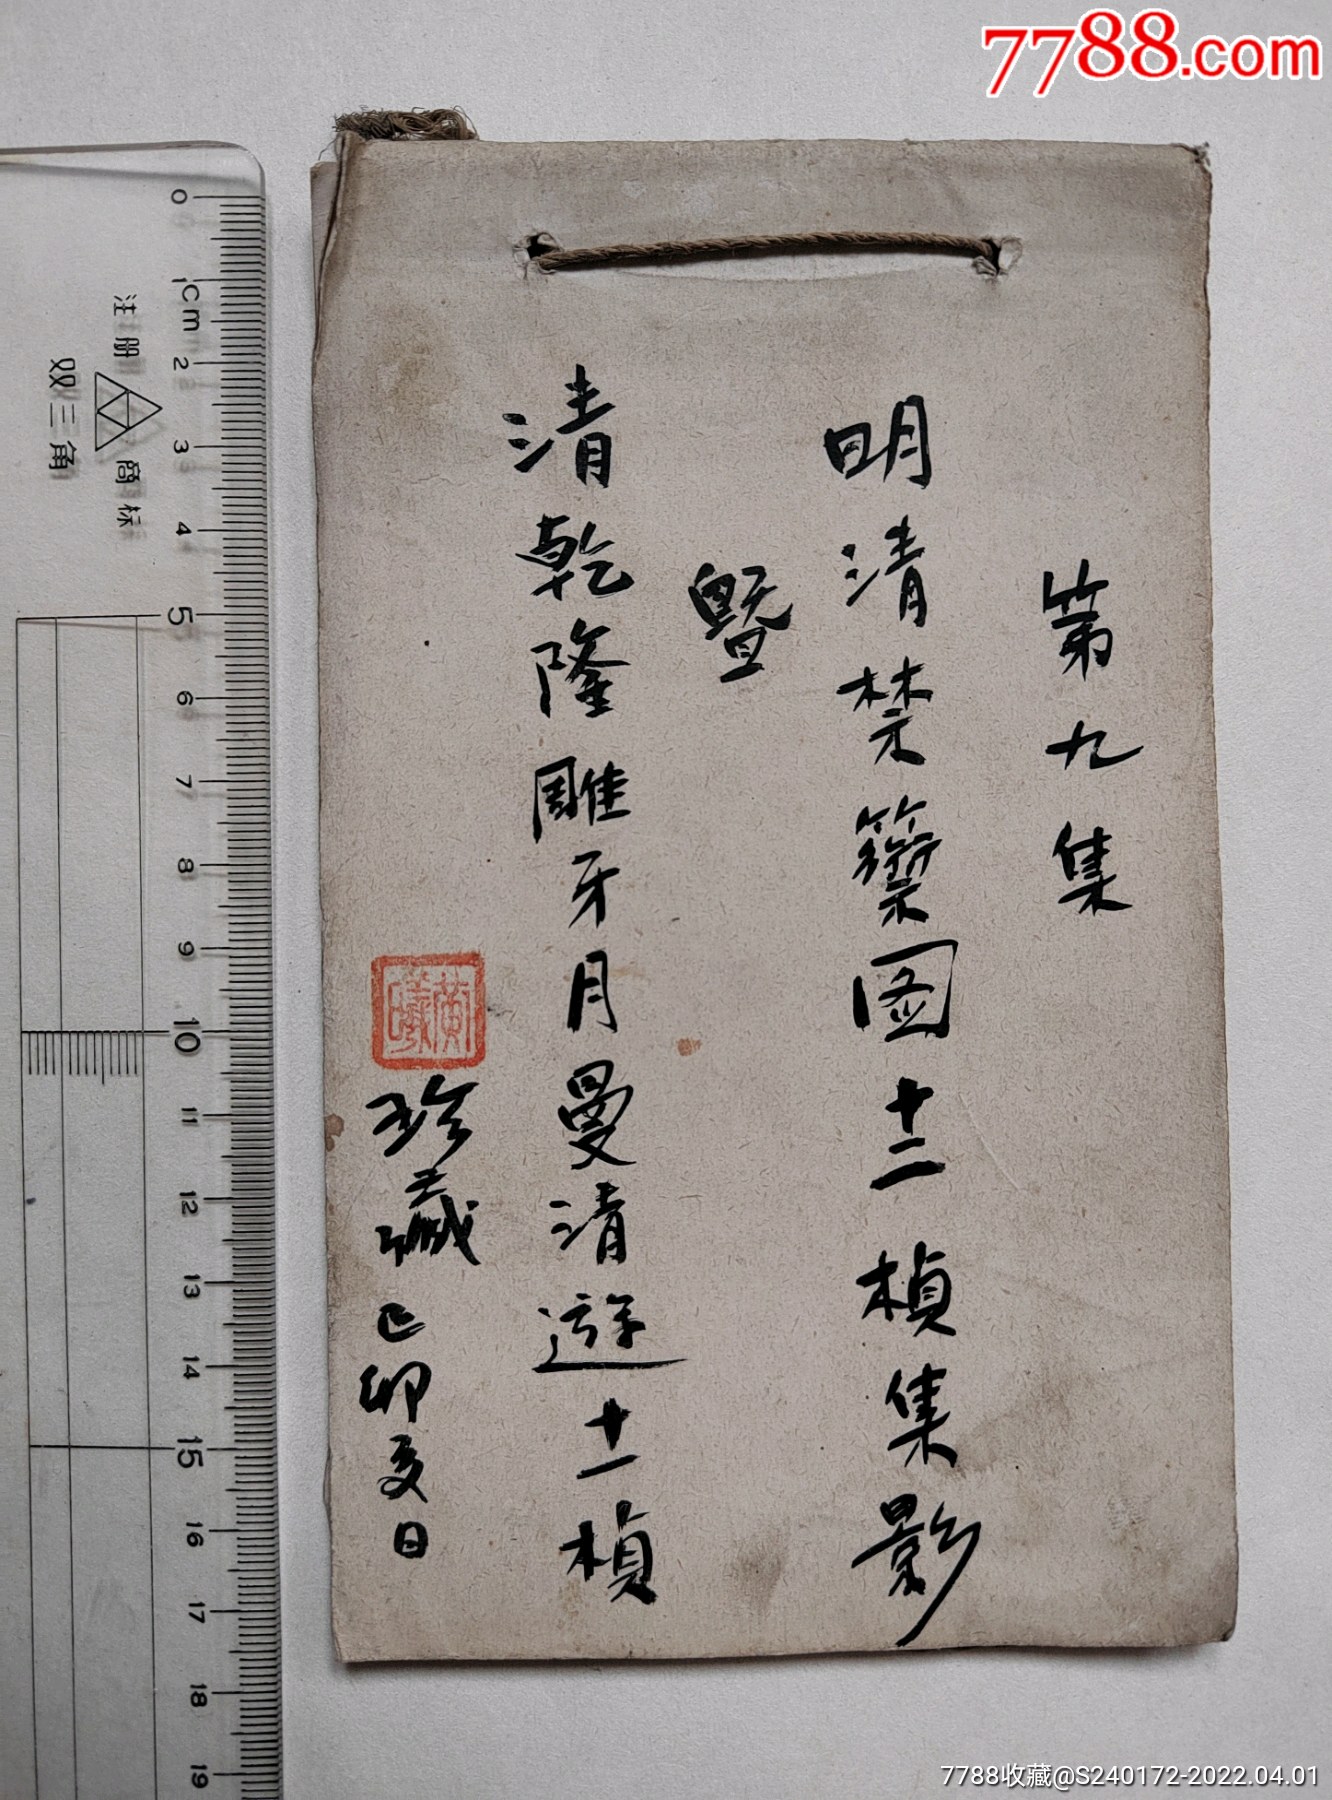 7788.com
第九集
明清禁籞图十二楨集影
暨
清乾隆雕牙月曼清遊十一楨
黄曦
珍藏己卯亥日
注册商标
双三角
0
1cm
2
3
4
5
6
7
8
9
10
11
12
13
14
15
16
17
18
19
7788收藏@S240172-2022.04.01